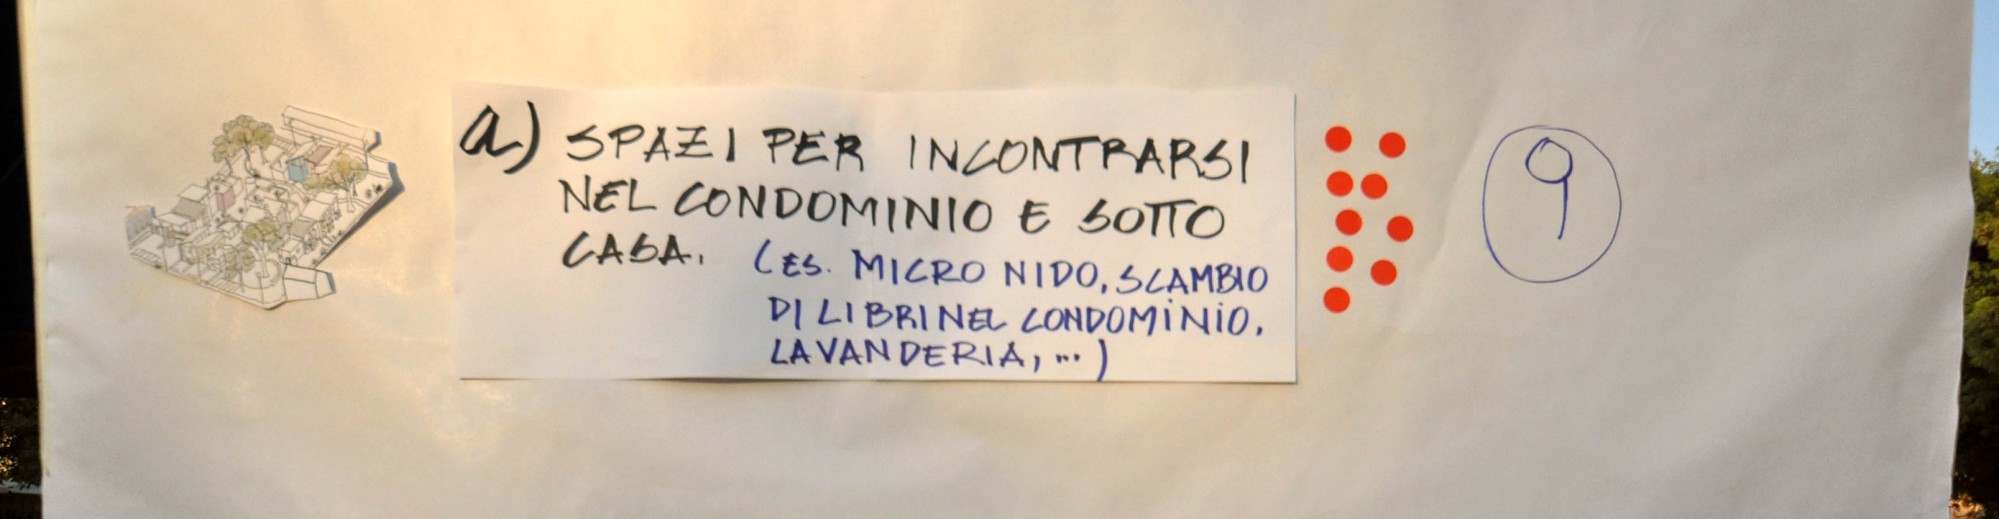 a) SPAZI PER INCONTRARSI
NEL CONDOMINIO E SOTTO
CASA. (ES. MICRO NIDO, SCAMBIO
DI LIBRI NEL CONDOMINIO,
LAVANDERIA, ...)
9